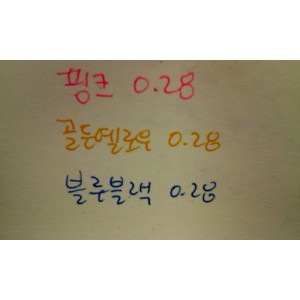 핑크 0.28
골든옐로우 0.28
블루블랙 0.28